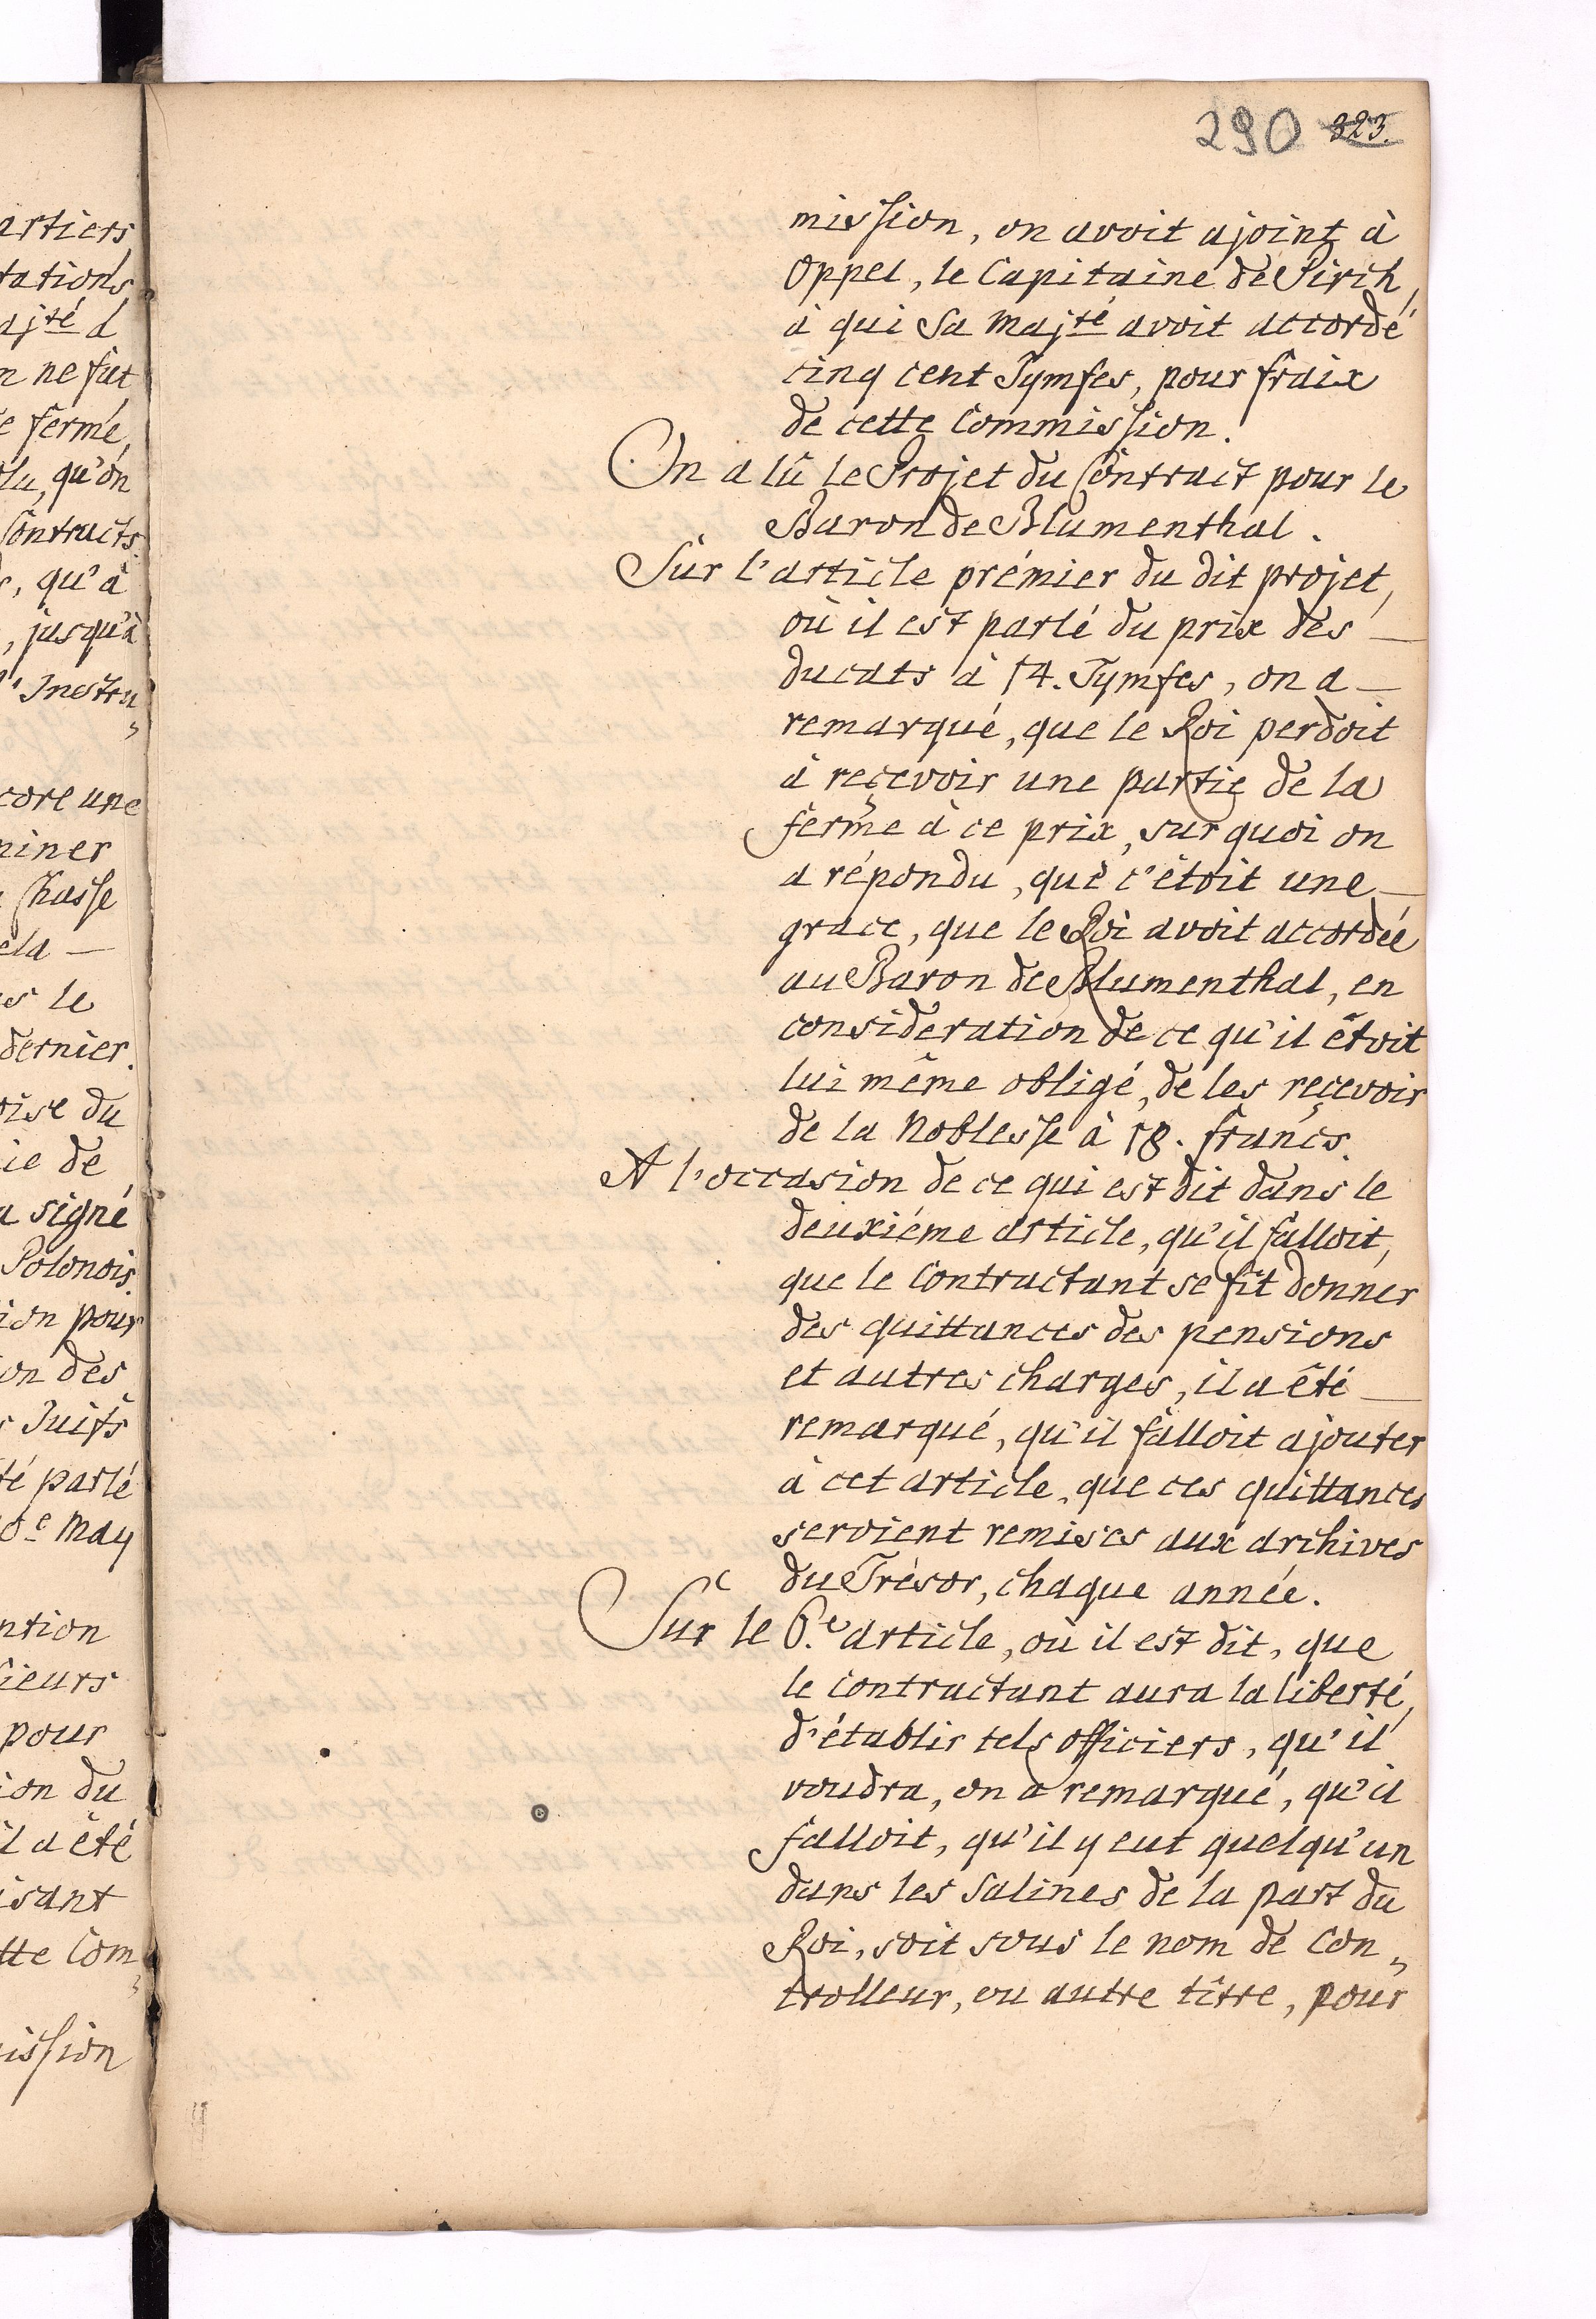 artiers
tations
ajté d
n ne fut
e fermé,
olu, qu'on
Contracts.
s, qu'à
, jusqu'à
l'Instru„
core une
miner
Chasse
ela —
es le
dernier.
oise du
ie de
a signé
Polonois.
ion pour
on des
s Juifs
té parlé
0e May
ntion
sieurs
pour
ion du
il a êté
isant
tte Com„
ission
290 323.
mission, on avoit ajoint à
Oppel, le Capitaine de Pirch,
à qui Sa Majté avoit accordé
cinq cent Tymfes, pour fraix
de cette Commission.
On a lû le Projet du Contract pour le
Baron de Blumenthal.
Sur l'article prémier du dit projet,
où il est parlé du prix des —
ducats à 14. Tymfes, on a —
remarqué, que le Roi perdoit
à reçevoir une partie de la
ferme à ce prix, sur quoi on
a répondu, que c'êtoit une —
grace, que le Roi avoit accordée
au Baron de Blumenthal, en
consideration de ce qu'il êtoit
lui même obligé, de les reçevoir
de la Noblesse à 18. francs.
A l'occasion de ce qui est dit dans le
deuxiéme article, qu'il falloit,
que le Contractant se fit donner
des quittances des pensions
et autres charges, il a êté —
remarqué, qu'il falloit ajouter
à cet article, que ces quittances
seroient remises aux archives
du Trésor, chaque année.
Sur le 6.e article, où il est dit, que
le contractant aura la liberté,
d'établir tels officiers, qu'il
voudra, on a remarqué, qu'il
falloit, qu'il y eut quelqu'un
dans les Salines de la part du
Roi, soit sous le nom de Con„
trolleur, ou autre titre, pour